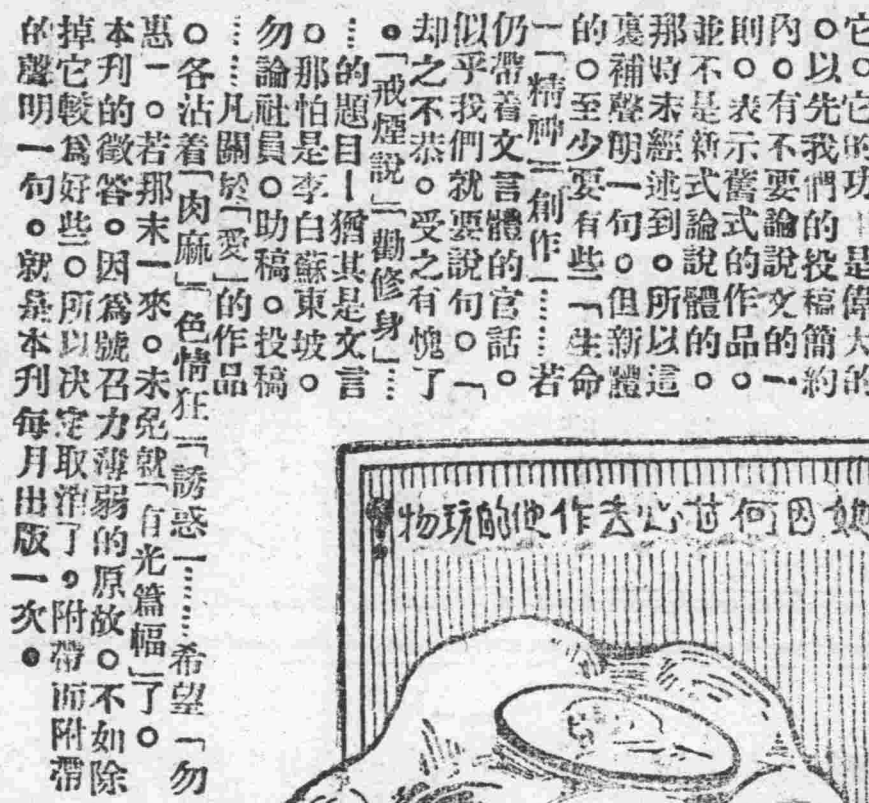 它。它的功 是偉大的
。以先我們的投稿簡約
內。有不要論說文的一
則。表示舊式的作品。
並不是新式論說體的。
那時未經述到。所以這
裏補聲明一句。但新體
的。至少要有些「生命
」「精神」「創作」……若
仍帶着文言體的官話。
似乎我們就要說句。「
却之不恭。受之有愧了
。「戒煙說」「勸修身」…
…的題目—猶其是文言
。那怕是李白蘇東坡。
勿論社員。助稿。投稿
……凡關於「愛」的作品
。各沾着「肉麻」「色情狂」「誘惑」……希望「勿
惠」。若那末一來。未免就「有光篇幅」了。
本刊的徵答。因爲號召力薄弱的原故。不如除
掉它較爲好些。所以决定取消了。附帶而附帶
的聲明一句。就是本刊每月出版一次。
她因何甘心去作他的玩物